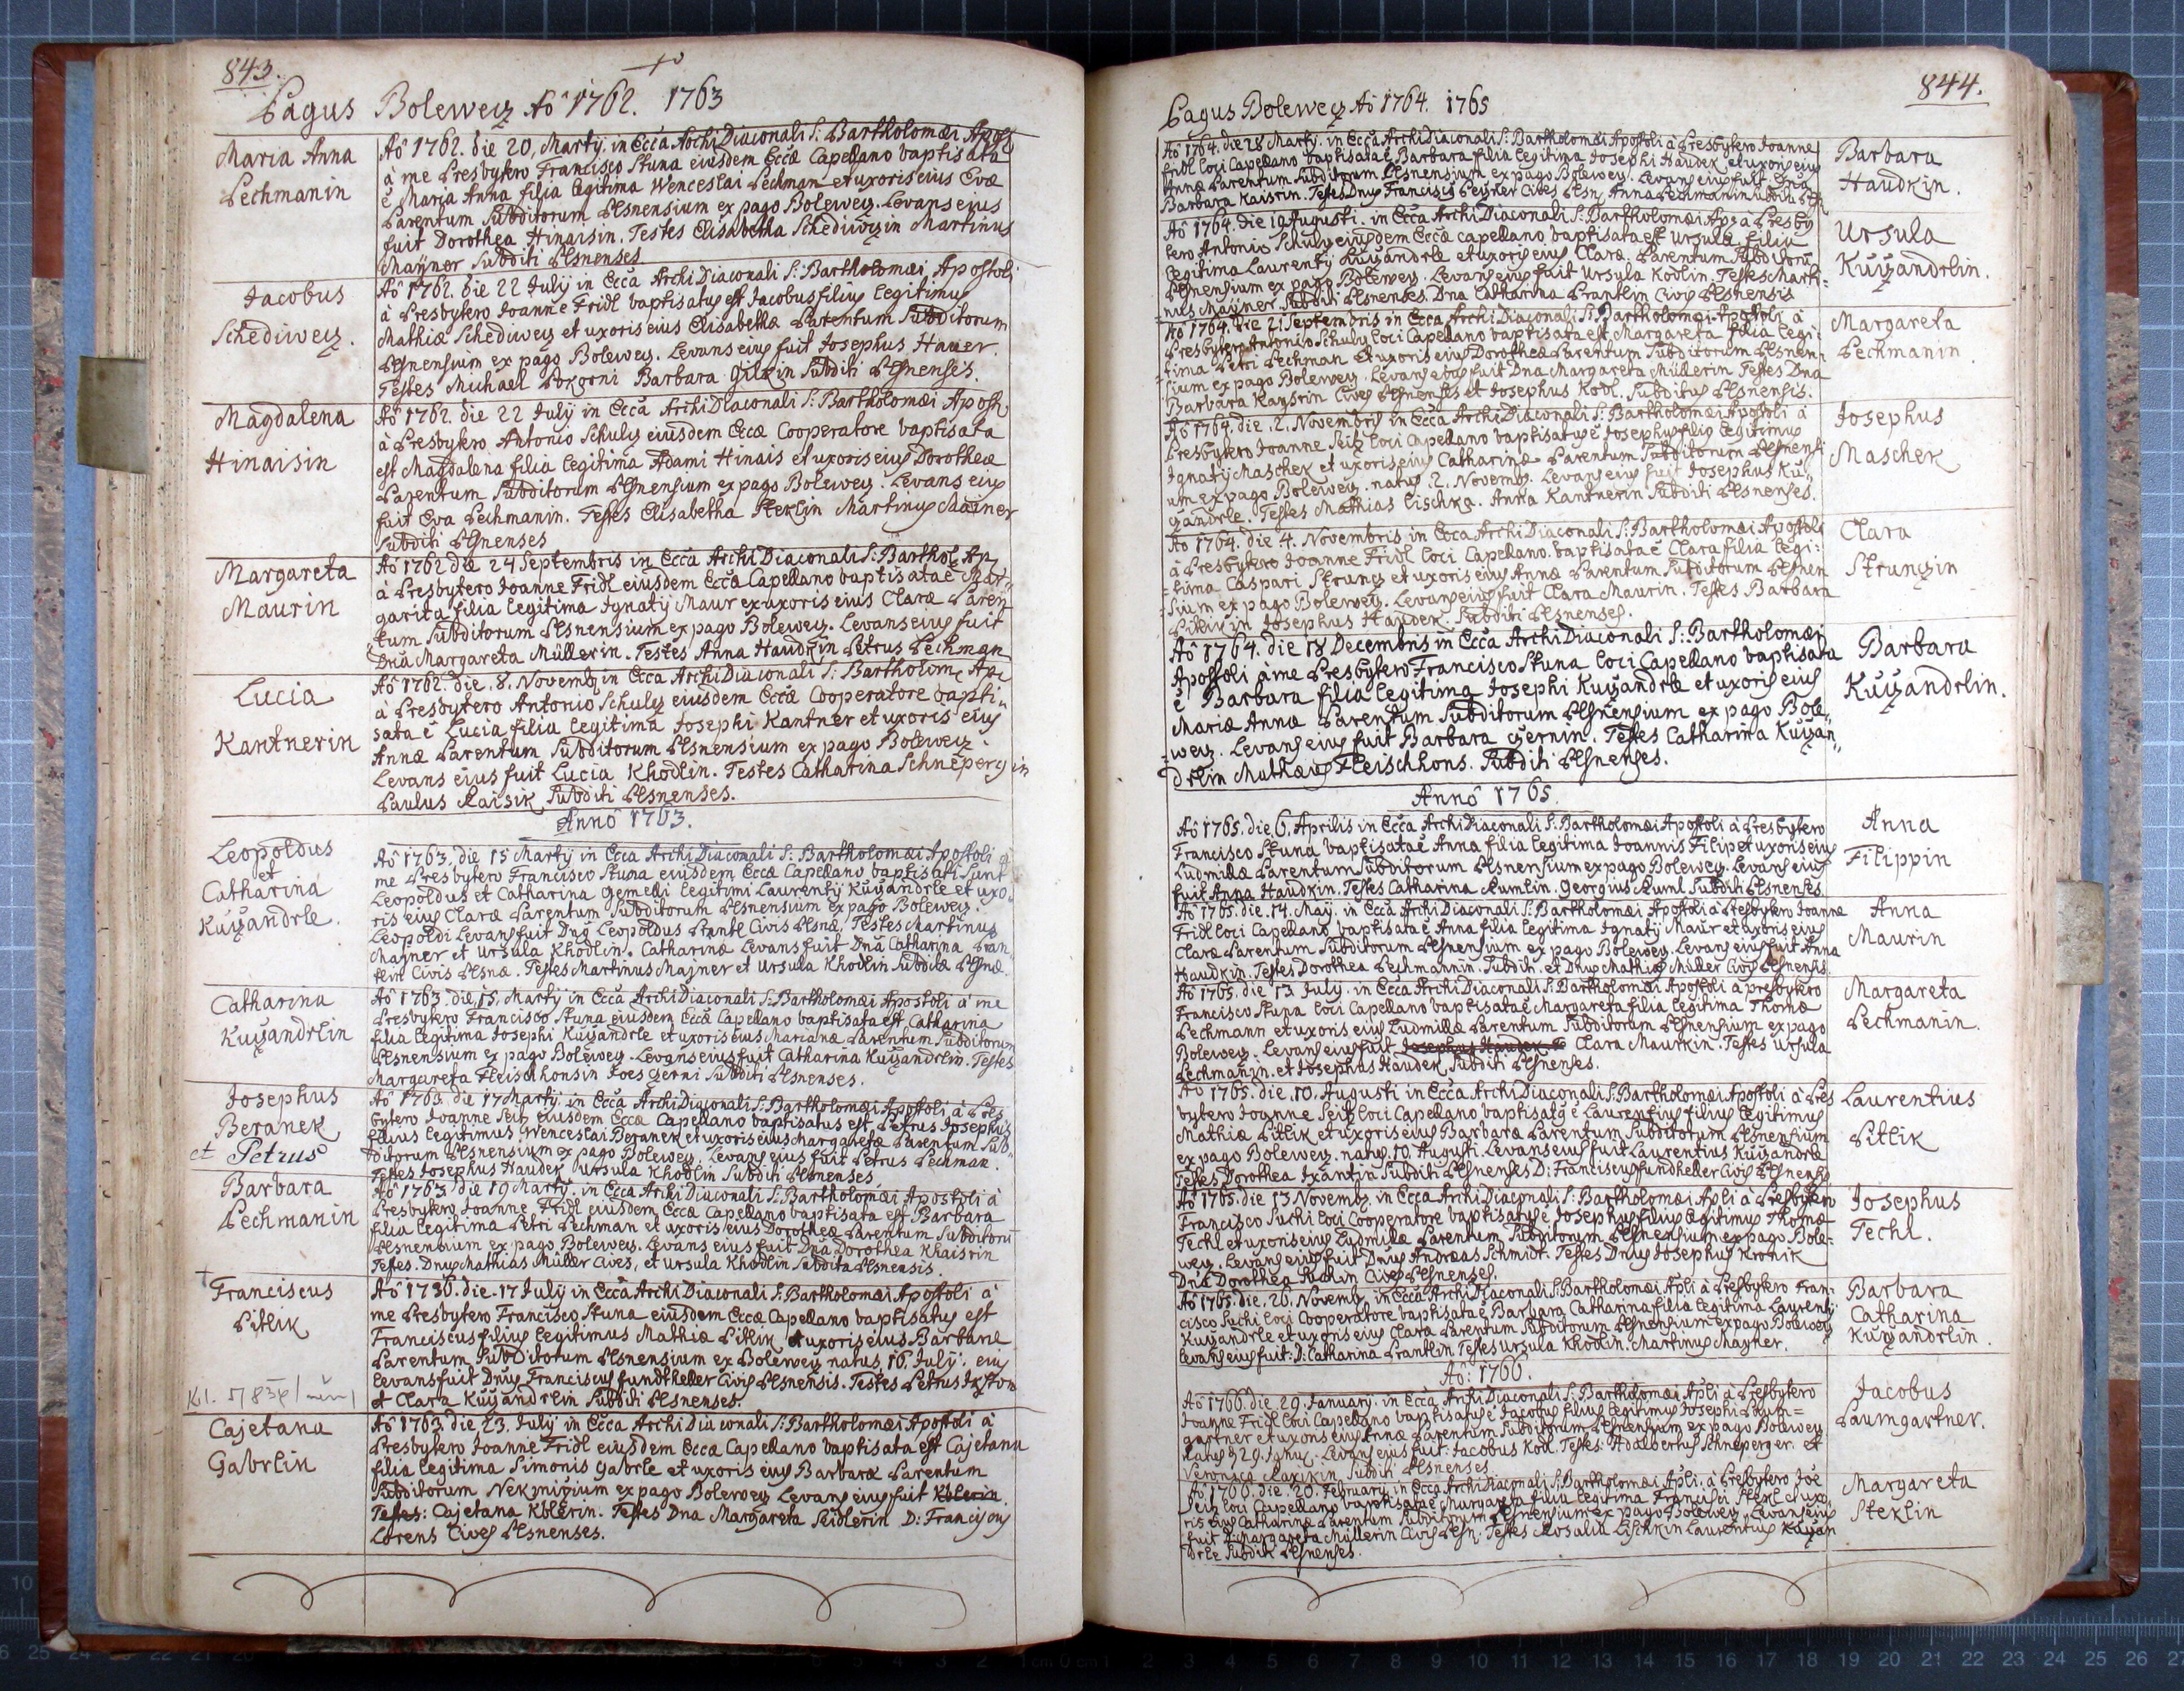 843.
Pagus Bolewecz Aô 1762. 1763
Maria Anna
Pechmanin
Aô 1762. die 20. Martÿ. in Eccâ ArchiDiaconali S: Bartholomæi Apost
à me Presbytero Francisco Stuna eiusdem Eccæ Capellano baptisata
ē Maria Anna filia legitima Wenceslai Pechman et uxoris eius Evæ
Parentum Subditorum Plsnensium ex pago Bolewecz. Levans eius
fuit Dorothea Hinaisin. Testes Elisabetha Schediwczin Martinus
Maÿner Subditi Plsnenses
Jacobus
Schediwecz.
Aô 1762. die 22 Julÿ in Eccâ ArchiDiaconali S: Bartholomæi Apostoli
à Presbytero Joanne Fridl baptisatus est Jacobus filius legitimus
Mathiæ Schediwecz et uxoris eius Elisabethæ Parentum Subditorum
Plsnensium ex pago Bolewecz. Levans eius fuit Josephus Hauer.
Testes Michael Pokorni Barbara Gilkin Subditi Plsnenses.
Magdalena
Hinaisin
Aô 1762. die 22 Julÿ in Eccâ ArchiDiaconali S: Bartholomæi Apost
à Presbytero Antonio Schulz eiusdem Eccæ Cooperatore baptisata
est Magdalena filia legitima Adami Hinais et uxoris eius Dorotheæ
Parentum Subditorum Plsnensium ex pago Bolewecz. Levans eius
fuit Eva Pechmanin. Testes Elisabetha Steklin Martinus Mainer
Subditi Plsnenses
Margareta
Maurin
Aô 1762 die 24 Septembris in Eccâ ArchiDiaconali S: Barthol: Ap
à Presbytero Joanne Fridl eiusdem Eccæ Capellano baptisata ē Mar
garita filia legitima Ignatÿ Maur ex uxoris eius Claræ Paren
tum Subditorum Plsnensium ex pago Bolewecz. Levans eius fuit
Dnā Margareta Müllerin. Testes Anna Haudkin Petrus Pechman
Lucia
Kantnerin
Aô 1762. die. 8. Novemb in Eccâ ArchiDiaconali S: Bartholom: Ap
à Presbytero Antonio Schulz eiusdem Eccæ Cooperatore bapti
sata ē Lucia filia legitima Josephi Kantner et uxoris eius
Annæ Parentum Subditorum Plsnensium ex pago Bolewecz.
Levans eius fuit Lucia Khodlin. Testes Catharina Schnepergin
Paulus Raisik Subditi Plsnenses.
Annô 1763.
Leopoldus
et
Catharina
Kuczandrle.
Aô 1763. die 15 Martÿ in Eccâ ArchiDiaconali S: Bartholomæi Apostoli à
me Presbytero Francisco Stuna eiusdem Eccæ Capellano baptisati sunt
Leopoldus et Catharina Gemelli legitimi Laurentÿ Kuczandrle et uxo
ris eius Claræ Parentum Subditorum Plsnensium ex pago Bolewecz.
Leopoldi Levans fuit Dnus Leopoldus Prantl Civis Plsnæ. Testes Martinus
Majner et Ursula Khodlin. Catharinæ Levans fuit Dnā Catharina Pran
tlin Civis Plsnæ. Testes Martinus Majner et Ursula Khodlin Subditæ Plsnæ.
Catharina
Kuczandrlin
Aô 1763. die 15. Martÿ in Eccâ ArchiDiaconali S: Bartholomæi Apostoli à me
Presbytero Francisco Stuna eiusdem Eccæ Capellano baptisata est Catharina
filia legitima Josephi Kuczandrle et uxoris eius Marianæ Parentum Subditorum
Plsnensium ex pago Bolewecz. Levans eius fuit Catharina Kuczandrlin. Testes
Margareta Fleischhonsin Joes Czerni Subditi Plsnenses.
Josephus
Beranek
et Petrus
Aô 1763. die 17 Martÿ. in Eccâ ArchiDiaconali S: Bartholomæi Apostoli à Pres
bytero Joanne Seitz eiusdem Eccæ Capellano baptisatus est Petrus Josephus
filius legitimus Wenceslai Beranek et uxoris eius Margaretæ Parentum Sub
ditorum Plsnensium ex pago Bolewecz. Levans eius fuit Petrus Pechman.
Testes Josephus Haudek Ursula Khodlin Subditi Plsnenses.
Barbara
Pechmanin
Aô 1763 die 19 Martÿ. in Eccâ ArchiDiaconali S: Bartholomæi Apostoli à
Presbytero Joanne Fridl eiusdem Eccæ Capellano baptisata est Barbara
filia legitima Petri Pechman et uxoris eius Dorotheæ Parentum Subditorū
Plsnensium ex pago Bolewecz. Levans eius fuit Dnā Dorothea Khaisrin
Testes. Dnus Mathias Müller Cives, et Ursula Khodlin Subdita Plsnensis.
† Franciscus
Pitlik
Aô 1736. die. 17 Julÿ in Eccâ ArchiDiaconali S: Bartholomæi Apostoli à
me Presbytero Francisco Stuna eiusdem Eccæ Capellano baptisatus est
Franciscus filius legitimus Mathiæ Pitlik et uxoris eius Barbaræ
Parentum Subditorum Plsnensium ex Bolewecz natus 16. Julÿ. eius
Levans fuit Dnus Franciscus fundtheller Civis Plsnensis. Testes Petrus
et Clara Kuczandrlin Subditi Plsnenses.
Cajetana
Gabrlin
Aô 1763. die. 23. Julÿ in Eccâ ArchiDiaconali S: Bartholomæi Apostoli à
Presbytero Joanne Fridl eiusdem Eccæ Capellano baptisata est Cajetana
filia legitima Simonis Gabrle et uxoris eius Barbaræ Parentum
Subditorum ex pago Bolewecz Levans eius fuit Kblerin.
Testes: Cajetana Kblerin. Testes Dna Margareta Seidlerin D: Franciscus
Lorens Cives Plsnenses.
844.
Pagus Bolewecz Aô 1764. 1765
Aô 1764. die 28 Martÿ. in Eccâ ArchiDiaconali S: Bartholomæi Apostoli à Presbytero Joanne
Fridl Loci Capellano baptisata ē Barbara filia legitima Josephi Haudek et uxoris eius
Annæ Parentum Subditorum Plsnensium ex pago Bolewecz. Levans eius fuit Dna
Barbara Kaisrin. Testes Dnus Franciscus Peisker Cives Plsn. Anna Pechmanin
Barbara
Haudkin.
Aô 1764. die 10 Augusti. in Eccâ ArchiDiaconali S: Bartholomæi Ap à Presby
tero Antonio Schulz eiusdem Eccæ capellano baptisata est Ursula filia
legitima Laurentÿ Kuczandrle et uxoris eius Claræ. Parentum Subditorū
Plsnensium ex pago Bolewecz. Levans eius fuit Ursula Kodlin. Testes Marti:
nus Maÿner Subditi Plsnenses. Dna Catharina Prantlin Civis Plsnensis
Ursula
Kuczandrlin.
Aô 1764. die 21 Septembris in Eccâ ArchiDiaconali S: Bartholomæi Apostoli à
Presbytero Antonio Schulz Loci Capellano baptisata est Margareta filia legi:
tima Petri Pechman et uxoris eius Dorotheæ Parentum Subditorum Plsnen
sium ex pago Bolewecz. Levans eius fuit Dna Margareta Müllerin Testes Dna
Barbara Kaysrin Cives Plsnensis et Josephus Kodl. Subditus Plsnensis.
Margareta
Pechmanin
Aô 1764. die. 2. Novembris in Eccâ ArchiDiaconali S: Bartholomæi Apostoli à
Presbytero Joanne Seitz Loci Capellano baptisatus ē Josephus filius legitimus
Ignatÿ Maschek et uxoris eius Catharinæ Parentum Subditorum Plsnensi
um ex pago Bolewecz. natus. 2. Novemb. Levans eius fuit Josephus Ku
czandrle. Testes Mathias Lischka. Anna Kantnerin Subditi Plsnenses.
Josephus
Maschek
Aô 1764. die 4. Novembris in Eccâ ArchiDiaconali S: Bartholomæi Apostoli
à Presbytero Joanne Fridl Loci Capellano. baptisata ē Clara filia legi:
tima Caspari Struncz et uxoris eius Annæ Parentum Subditorum Plsnen
sium ex pago Bolewecz. Levans eius fuit Clara Maurin. Testes Barbara
Pitlikin Josephus Haudek. Subditi Plsnenses.
Clara
Strunczin
Aô 1764. die 18 Decembris in Eccâ ArchiDiaconali S: Bartholomæi
Apostoli à me Presbytero Francisco Stuna Loci Capellano baptisata
ē Barbara filia legitima Josephi Kuczandrle et uxoris eius
Mariæ Annæ Parentum Subditorum Plsnensium ex pago Bole
wecz. Levans eius fuit Barbara Czernin. Testes Catharina Kuczan
drlin Mathæus Fleischhons. Subditi Plsnenses.
Barbara
Kuczandrlin.
Annô 1765.
Aô 1765. die 6. Aprilis in Eccâ ArchiDiaconali S: Bartholomæi Apostoli à Presbytero
Francisco Stuna baptisata ē Anna filia legitima Joannis Filip et uxoris eius
Ludmillæ Parentum Subditorum Plsnensium ex pago Bolewecz. Levans eius
fuit Anna Haudkin. Testes Catharina Rumlin. Georgius Ruml Subditi Plsnenses.
Anna
Filippin
Aô 1765. die. 14. Maÿ. in Eccâ ArchiDiaconali S: Bartholomæi Apostoli à Presbytero Joanne
Fridl Loci Capellano baptisata ē Anna filia legitima Ignatÿ Maur et uxoris eius
Claræ Parentum Subditorum Plsnensium ex pago Bolewecz. Levans eius fuit Anna
Haudkin. Testes Dorothea Pechmannin. Subdit. et Dnus Mathias Müller Civis Plsnensis
Anna
Maurin
Aô 1765. die. 13. Julÿ. in Eccâ ArchiDiaconali S: Bartholomæi Apostoli à presbytero
Francisco Stuna Loci Capellano baptisata ē Margareta filia legitima Thomæ
Pechmann et uxoris eius Ludmillæ Parentum Subditorum Plsnensium ex pago
Bolewecz. Levans eius fuit Josephus Haudek Clara Maurkin. Testes Ursula
Pechmanin. et Josephus Haudek, Subditi Plsnenses.
Margareta
Pechmanin.
Aô 1765. die. 10. Augusti in Eccâ ArchiDiaconali S: Bartholomæi Apostoli à Pres
bytero Joanne Seitz Loci Capellano baptisatus ē Laurentius filius legitimus
Mathiæ Pitlik et uxoris eius Barbaræ Parentum Subditorum Plsnensium
ex pago Bolewecz. natus. 10. Augusti. Levans eius fuit Laurentius Kuczandrle
Testes Dorothea Subditi Plsnenses D: Franciscus fundheller Civis Plsnensis
Laurentius
Pitlik
Aô 1765. die 13 Novemb. in Eccâ ArchiDiaconali S: Bartholomæi Apli à Presbytero
Francisco Suchi Loci Cooperatore baptisatus ē Josephus filius legitimus Thomæ
Techl et uxoris eius Ludmillæ Parentum Subditorum Plsnensium ex pago Bole:
wecz. Levans eius fuit Dnus Andreas Schmidt. Testes Dnus Josephus Kronik
Dna Dorothea Cives Plsnenses.
Josephus
Techl.
Aô 1765. die. 26. Novemb. in Eccâ ArchiDiaconali S: Bartholomæi Apli à Presbytero Fran:
cisco Suchi Loci Cooperatore baptisata ē Barbara Catharina filia legitima Laurentÿ
Kuczandrle et uxoris eius Claræ Parentum Subditorum Plsnensium ex pago Bolewecz
Levans eius fuit: D: Catharina Prantlin Testes Ursula Khodlin. Martinus Mayner.
Barbara
Catharina
Kuczandrlin.
Aô: 1766.
Aô 1766. die. 29. January. in Eccâ ArchiDiaconali S: Bartholomæi Apli à Presbytero
Joanne Fridl Loci Capellano baptisatus ē Jacobus filius legitimus Josephi Paum=
gartner et uxoris eius Annæ Parentum Subditorum Plsnensium ex pago Bolewecz
natus 29. Janu: Levans eius fuit: Jacobus Kodl. Testes: Adalbertus Schneperger. et
Veronica Subditi Plsnenses
Jacobus
Paumgartner.
Aô 1766. die. 20. February. in Eccâ ArchiDiaconali S: Bartholomæi Apli. à Presbytero Joē
Seitz Loci Capellano baptisata ē Margareta filia legitima Francisci Stekl et uxo
ris eius Catharinæ Parentum Subditorum Plsnensium ex pago Bolewecz Levans eius
fuit D: Margareta Müllerin Civis Plsn. Testes Rosalia Lischkin Laurentius Kuczan
drle Subditi Plsnenses.
Margareta
Steklin